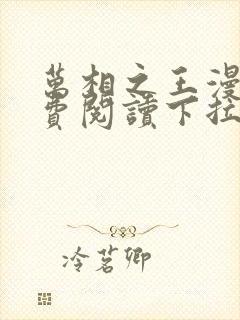 萬相之王漫
費閱讀下拉
冷茗卿